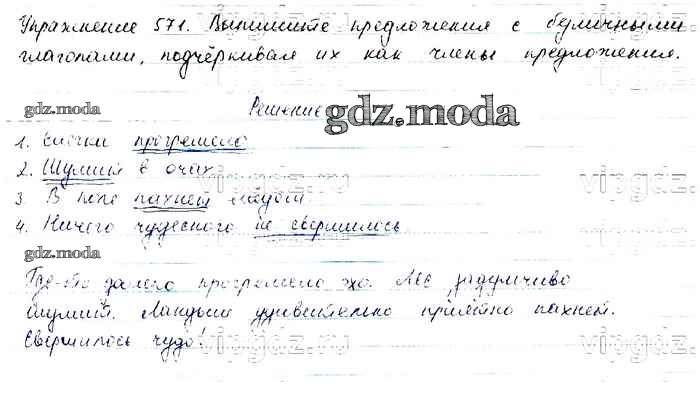 Упражнение 571. Выпишите предложения с безличными
глаголами, подчёркивая их как члены предложения.
gdz.moda
Решение
gdz.moda
1. прогремело
2. Шумит в очах
vipgdz.ru
vipgdz.ru
3. В пахнет мёдом.
4. Ничего чудесного не свершилось
gdz.moda
Где-то далеко прогремело эхо. Лес задумчиво
шумит. Ландыш удивительно приятно пахнет.
Свершилось чудо!
vipgdz.ru
vipgdz.ru